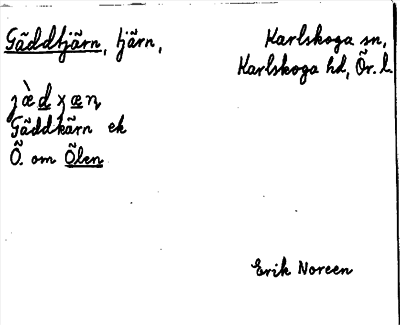 Gäddtjärn, tjärn,
Karlskoga sn,
Karlskoga hd, Ör. l.
Gäddkärn ek
Ö. om Ölen
Erik Noreen